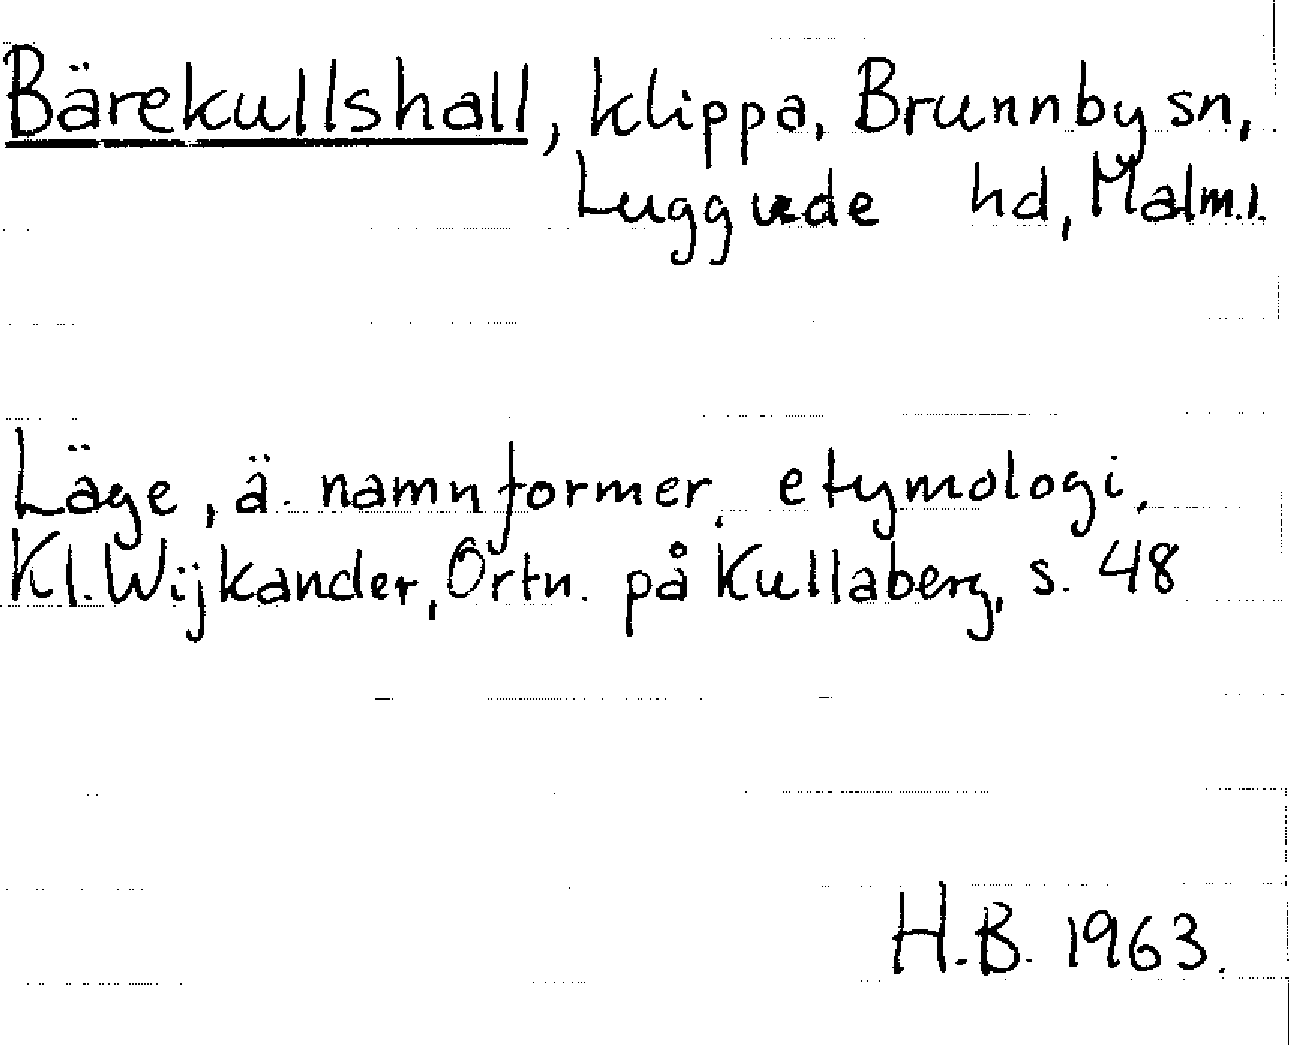 Bärekullshall, klippa, Brunnby sn,
Luggude hd, Malm.l.
Läge, ä. namnformer, etymologi,
Kl. Wijkander, Ortn. på Kullaberg, s. 48
H.B. 1963.